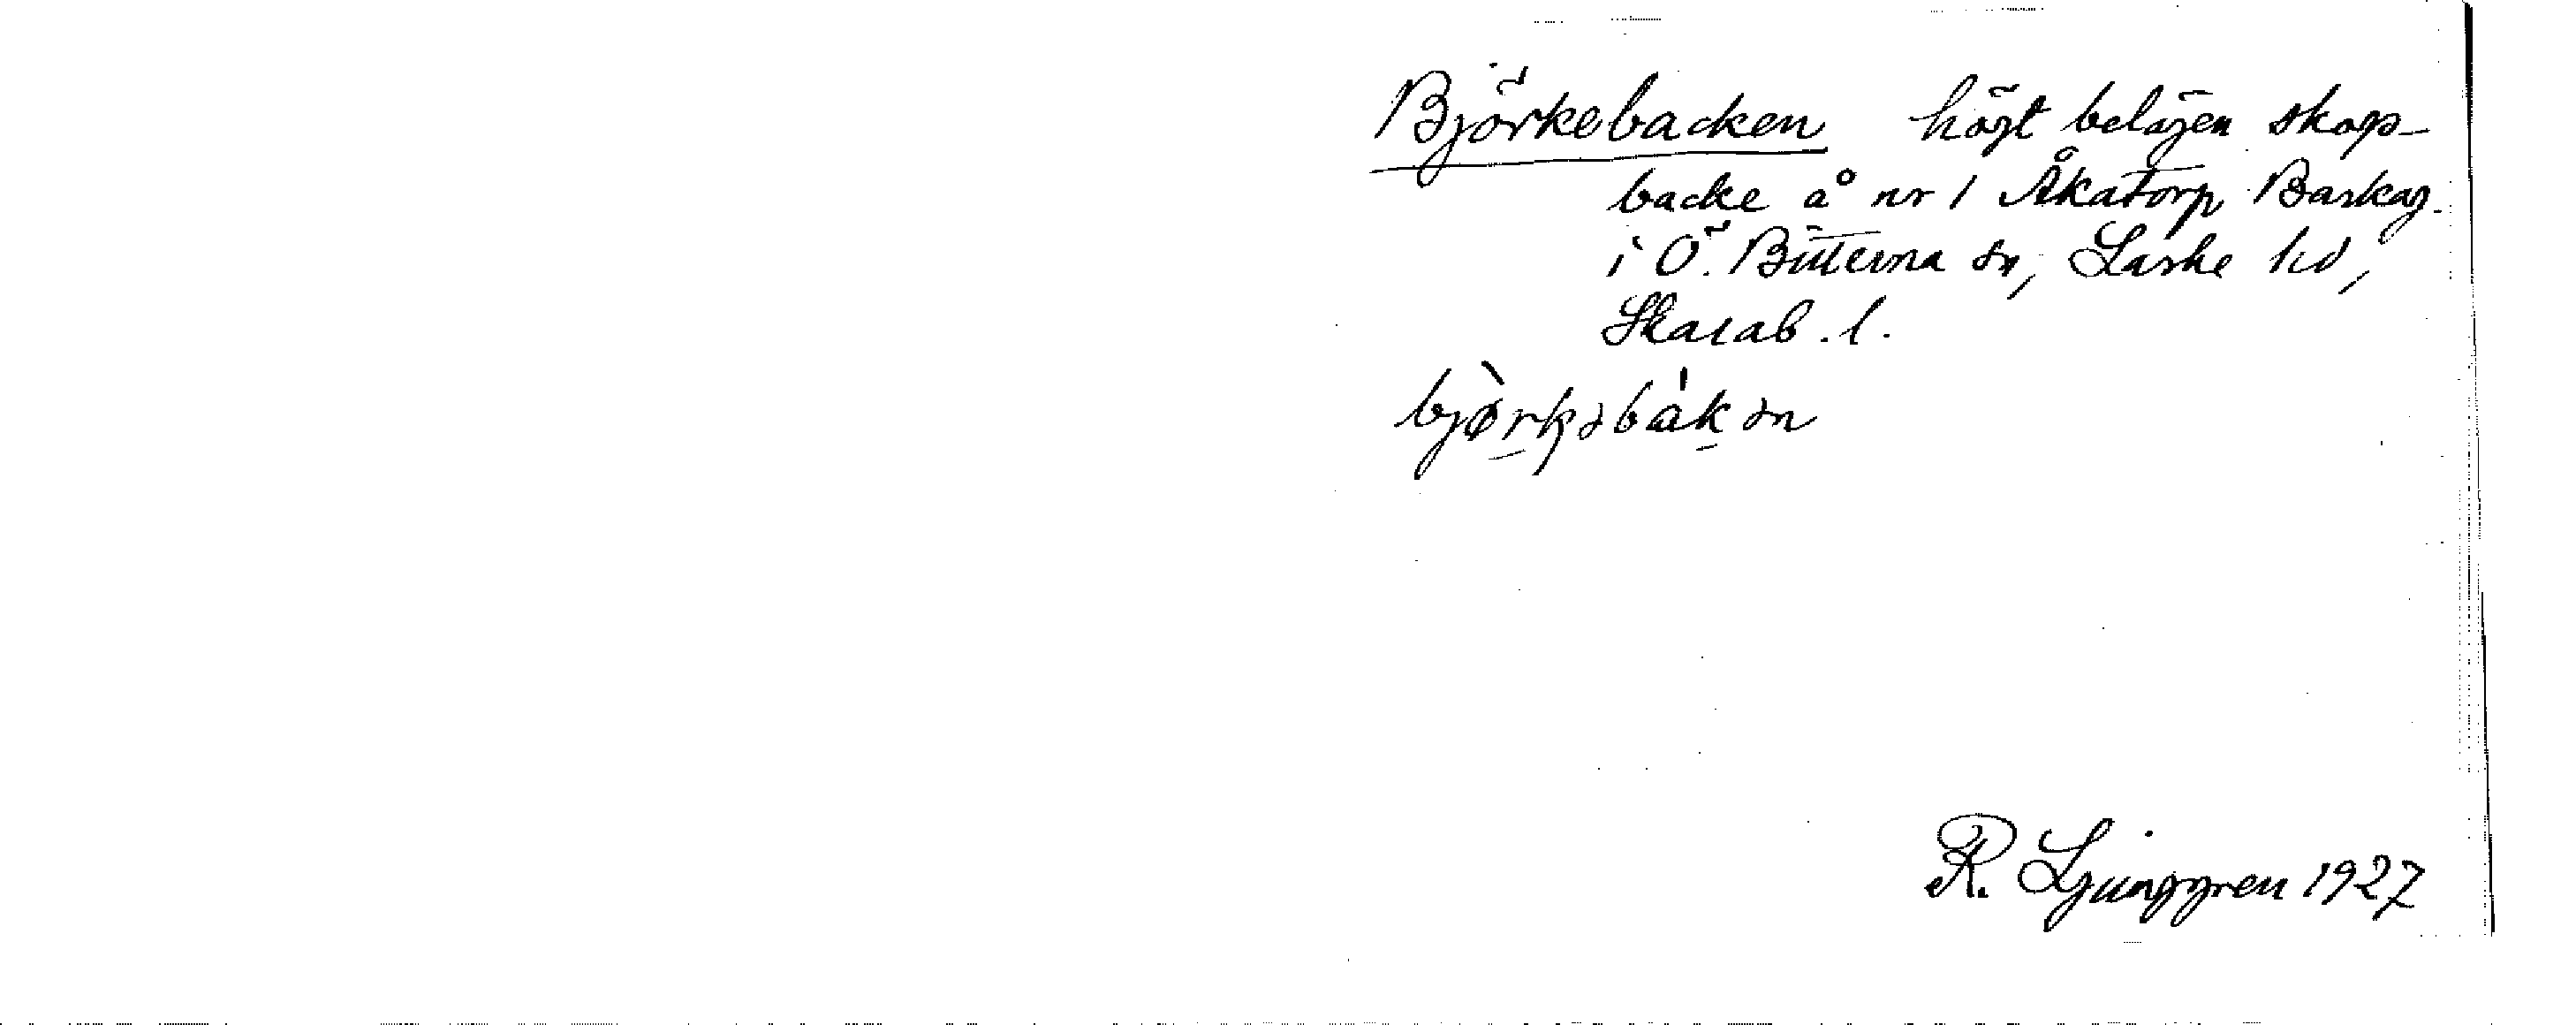 Björkebacken högt belägen skogs-
backe å nr 1 Åkatorp Baskag.
i Ö. Bitterna sn, Laske hd,
Skarab. l.
bjørkəbakən
R. Ljunggren 1927